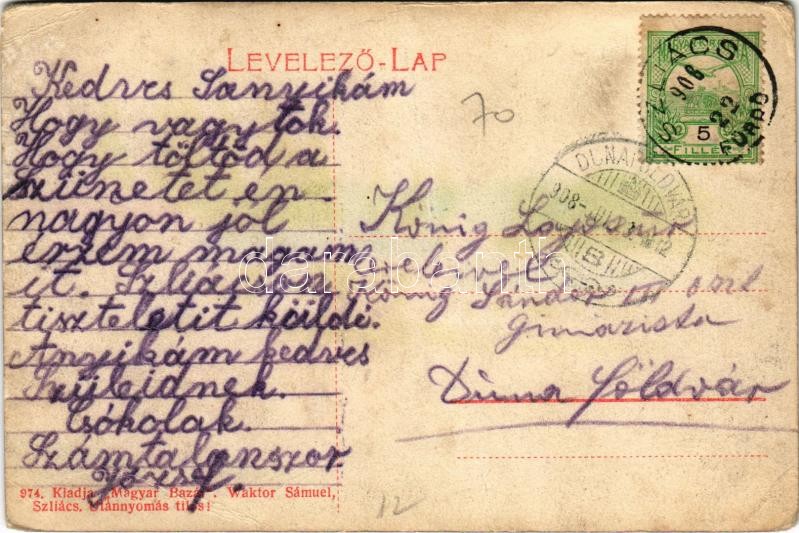 LEVELEZŐ-LAP
Kedves Sanyikám
Hogy vagytok.
Hogy töltöd a
Szünetet en
nagyon jól
érzem magam
it. Szliácson
tiszteletit küldi.
Anyikám kedves
Szüleidnek.
Csókolak.
Számtalanszor
József.
70
SZLIÁCS
908
22
FÜRDŐ
5
FILLÉR
DUNAFÖLDVÁR
908
König Lajos úr
König Sándor III oszt
gimazista
Duna földvár
darabanth
12
974. Kiadja „Magyar Bazár". Waktor Sámuel,
Szliács. Utánnyomás tilos!